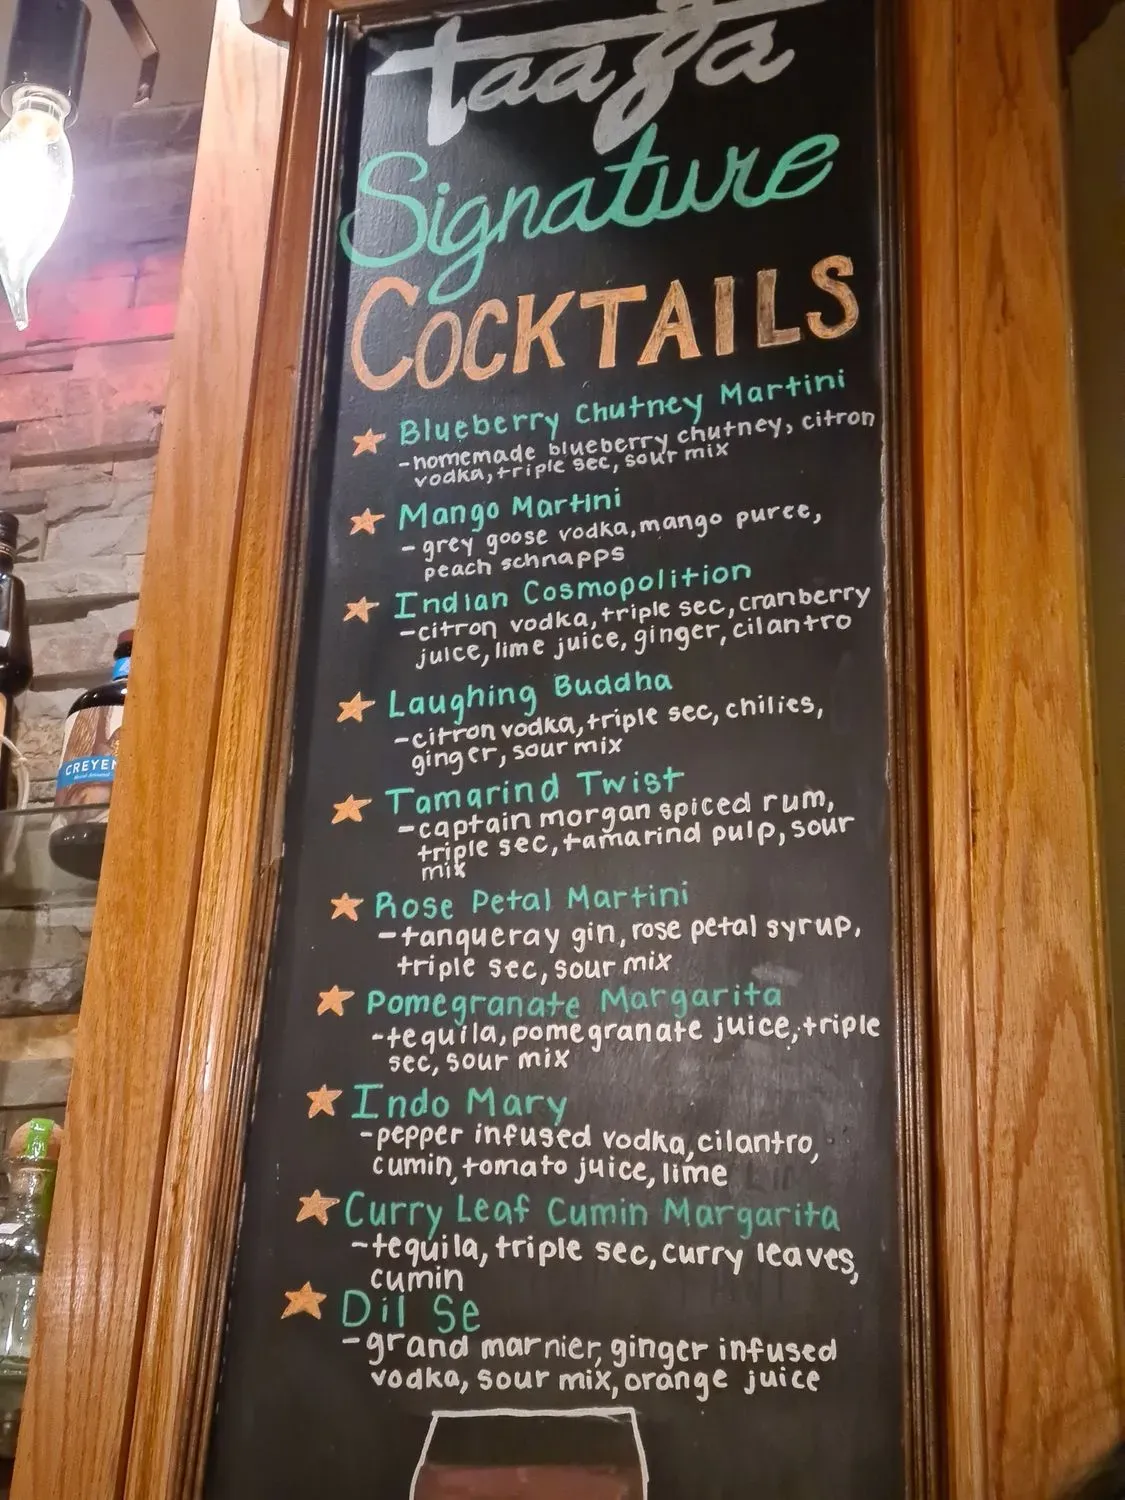 taaza
Signature
COCKTAILS
Blueberry Chutney Martini
-homemade blueberry chutney, citron
vodka, triple sec, sour mix
Mango Martini
- grey goose vodka, mango puree,
peach schnapps
Indian Cosmopolition
-citron vodka, triple sec, cranberry
juice, lime juice, ginger, cilantro
Laughing Buddha
-citron vodka, triple sec, chilies,
ginger, sour mix
Tamarind Twist
-captain morgan spiced rum,
triple sec, tamarind pulp, sour
mix
Rose Petal Martini
-tanqueray gin, rose petal syrup,
triple sec, sour mix
Pomegranate Margarita
-tequila, pomegranate juice, triple
sec, sour mix
Indo Mary
-pepper infused vodka, cilantro,
cumin, tomato juice, lime
Curry Leaf Cumin Margarita
-tequila, triple sec, curry leaves,
cumin
Dil Se
-grand marnier, ginger infused
vodka, sour mix, orange juice
CREYEN